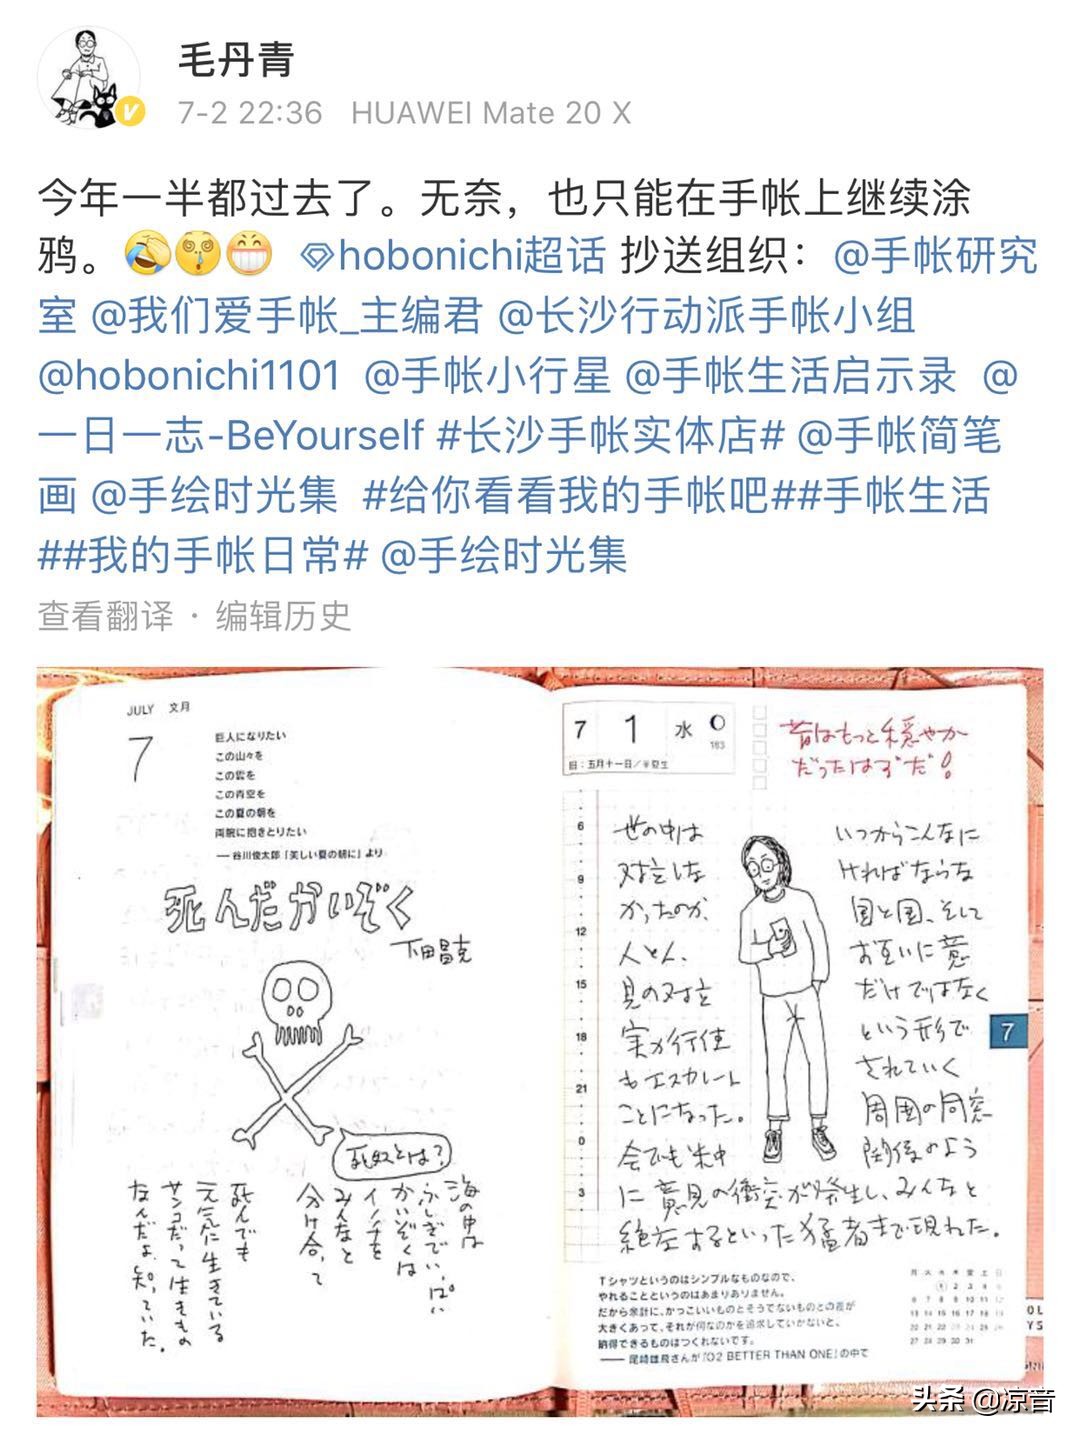 毛丹青
7-2 22:36 HUAWEI Mate 20 X
今年一半都过去了。无奈，也只能在手帐上继续涂
鸦。 hobonichi超话 抄送组织：@手帐研究
室 @我们爱手帐_主编君 @长沙行动派手帐小组
@hobonichi1101 @手帐小行星 @手帐生活启示录 @
一日一志-BeYourself #长沙手帐实体店# @手帐简笔
画 @手绘时光集 #给你看看我的手帐吧##手帐生活
##我的手帐日常# @手绘时光集
查看翻译 · 编辑历史
JULY 文月
7
巨人になりたい
この山々を
この雲を
この青空を
この夏の朝を
両腕に抱きとりたい
——谷川俊太郎「美しい夏の朝に」より
死んだかいぞく
下田昌克
死奴とは？
海の中は
ふしぎでいっぱい
かいぞくは
イノチを
みんなと
分け合って
死んでも
元気に生きている
サンゴだって生きもの
なんだよ、知っていた。
7 1 水
183
旧：五月十一日／半夏生
昔はもっと穏やか
だったはずだ！
6
9
12
15
18
21
0
3
世の中は
対立しな
かったのか、
人と人、
見の対立
実力行使
もエスカレート
ことになった。
会でも米中
いつからこんなに
ければならな
国と国、そして
お互いに意
だけではなく
という形で
されていく
周囲の同窓
関係のよう
に意見の衝突が発生し、みんなと
絶交するといった猛者まで現れた。
7
Tシャツというのはシンプルなものなので、
やれることというのはあまりありません。
だから余計に、かっこいいものとそうでないものとの差が
大きくあって、それが何なのかを追求していかないと、
納得できるものはつくれないです。
——尾崎雄飛さんが「O2 BETTER THAN ONE」の中で
月 火 水 木 金 土 日
1 2 3 4 5
6 7 8 9 10 11 12
13 14 15 16 17 18 19
20 21 22 23 24 25 26
27 28 29 30 31
头条 @凉音